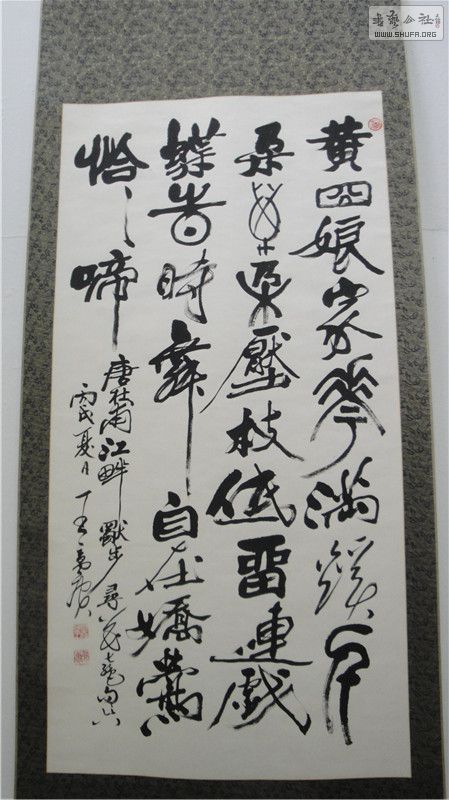 書藝公社
WWW.SHUFA.ORG
黄四娘家華滿蹊千
朵萬朵壓枝低留連戲
蝶時時舞自在嬌鶯
恰〻啼
唐杜甫江畔獨步尋花七絶句六
丙戌夏日丁